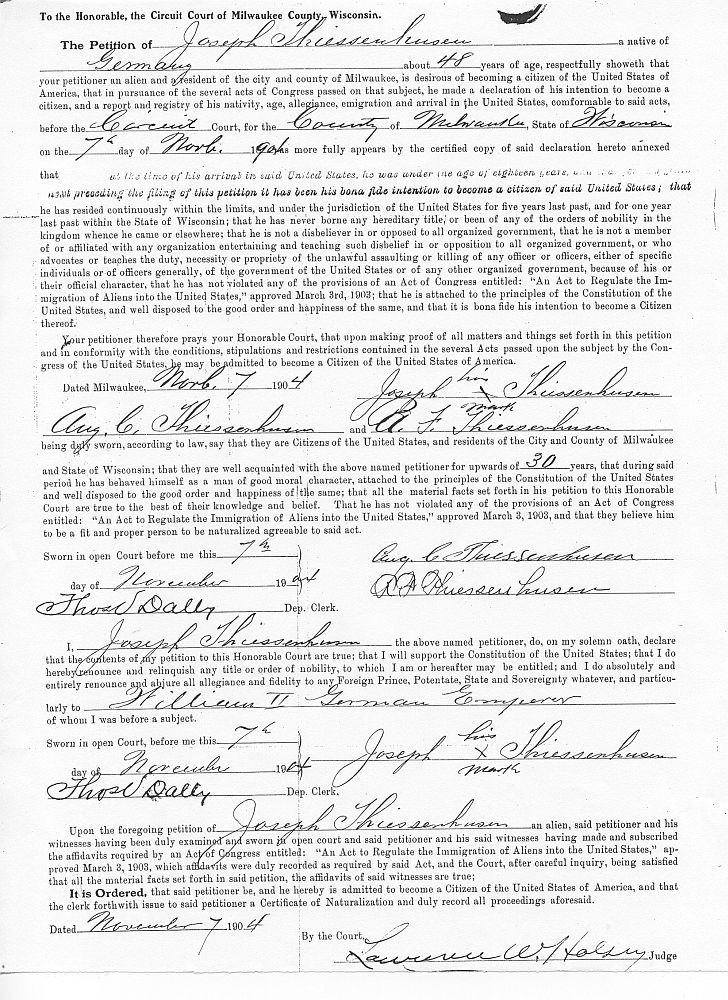 To the Honorable, the Circuit Court of Milwaukee County, Wisconsin.
The Petition of Joseph Thiessenhusen a native of
Germany about 48 years of age, respectfully showeth that
your petitioner an alien and a resident of the city and county of Milwaukee, is desirous of becoming a citizen of the United States of
America, that in pursuance of the several acts of Congress passed on that subject, he made a declaration of his intention to become a
citizen, and a report and registry of his nativity, age, allegiance, emigration and arrival in the United States, comformable to said acts,
before the Circuit Court, for the County of Milwaukee, State of Wisconsin
on the 7th day of Novb. 1904 as more fully appears by the certified copy of said declaration hereto annexed
that at the time of his arrival in said United States, he was under the age of eighteen years,
next preceding the filing of this petition it has been his bona fide intention to become a citizen of said United States; that
he has resided continuously within the limits, and under the jurisdiction of the United States for five years last past, and for one year
last past within the State of Wisconsin; that he has never borne any hereditary title, or been of any of the orders of nobility in the
kingdom whence he came or elsewhere; that he is not a disbeliever in or opposed to all organized government, that he is not a member
of or affiliated with any organization entertaining and teaching such disbelief in or opposition to all organized government, or who
advocates or teaches the duty, necessity or propriety of the unlawful assaulting or killing of any officer or officers, either of specific
individuals or of officers generally, of the government of the United States or of any other organized government, because of his or
their official character, that he has not violated any of the provisions of an Act of Congress entitled: "An Act to Regulate the Im-
migration of Aliens into the United States," approved March 3rd, 1903; that he is attached to the principles of the Constitution of the
United States, and well disposed to the good order and happiness of the same, and that it is bona fide his intention to become a Citizen
thereof.
Your petitioner therefore prays your Honorable Court, that upon making proof of all matters and things set forth in this petition
and in conformity with the conditions, stipulations and restrictions contained in the several Acts passed upon the subject by the Con-
gress of the United States, he may be admitted to become a Citizen of the United States of America.
Dated Milwaukee, Novb. 7 1904 Joseph his x mark Thiessenhusen
Aug. C. Thiessenhusen and R. F. Thiessenhusen
being duly sworn, according to law, say that they are Citizens of the United States, and residents of the City and County of Milwaukee
and State of Wisconsin; that they are well acquainted with the above named petitioner for upwards of 30 years, that during said
period he has behaved himself as a man of good moral character, attached to the principles of the Constitution of the United States
and well disposed to the good order and happiness of the same; that all the material facts set forth in his petition to this Honorable
Court are true to the best of their knowledge and belief. That he has not violated any of the provisions of an Act of Congress
entitled: "An Act to Regulate the Immigration of Aliens into the United States," approved March 3, 1903, and that they believe him
to be a fit and proper person to be naturalized agreeable to said act.
Sworn in open Court before me this 7th Aug. C Thiessenhusen
day of November 1904 R F Thiessenhusen
Thos V Dally Dep. Clerk.
I, Joseph Thiessenhusen the above named petitioner, do, on my solemn oath, declare
that the contents of my petition to this Honorable Court are true; that I will support the Constitution of the United States; that I do
hereby renounce and relinquish any title or order of nobility, to which I am or hereafter may be entitled; and I do absolutely and
entirely renounce and abjure all allegiance and fidelity to any Foreign Prince, Potentate, State and Sovereignty whatever, and particu-
larly to William II German Emperor
of whom I was before a subject.
Sworn in open Court, before me this 7th
day of November 1904 Joseph his x mark Thiessenhusen
Thos V Dally Dep. Clerk.
Upon the foregoing petition of Joseph Thiessenhusen an alien, said petitioner and his
witnesses having been duly examined and sworn in open court and said petitioner and his said witnesses having made and subscribed
the affidavits required by an Act of Congress entitled: "An Act to Regulate the Immigration of Aliens into the United States," ap-
proved March 3, 1903, which affidavits were duly recorded as required by said Act, and the Court, after careful inquiry, being satisfied
that all the material facts set forth in said petition, the affidavits of said witnesses are true;
It is Ordered, that said petitioner be, and he hereby is admitted to become a Citizen of the United States of America, and that
the clerk forthwith issue to said petitioner a Certificate of Naturalization and duly record all proceedings aforesaid.
Dated November 7 1904
By the Court, Lawrence W. Halsey Judge